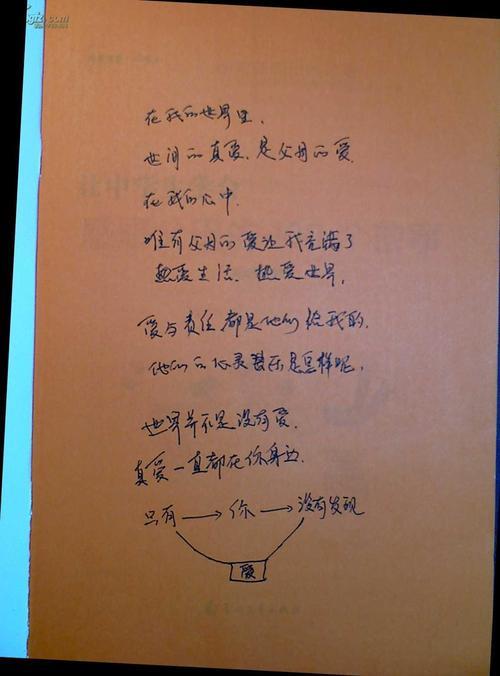 在我的世界里.
世间的真爱.是父母的爱.
在我的心中.
唯有父母的爱让我充满了
热爱生活.热爱世界.
爱与责任都是他们给我的.
他们的心灵是怎样呢.
世界并不是没有爱.
真爱一直都在你身边.
只有→你→没有发现
爱